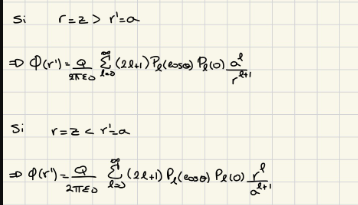 Si r=z > r'=a
⇒ Φ(r') = Q/2πε0 ∑_{l=0}^{∞} (2l+1) Pl(cosθ) Pl(0) a^l/r^{l+1}
Si r=z < r'=a
⇒ Φ(r') = Q/2πε0 ∑_{l=0}^{∞} (2l+1) Pl(cosθ) Pl(0) r^l/a^{l+1}